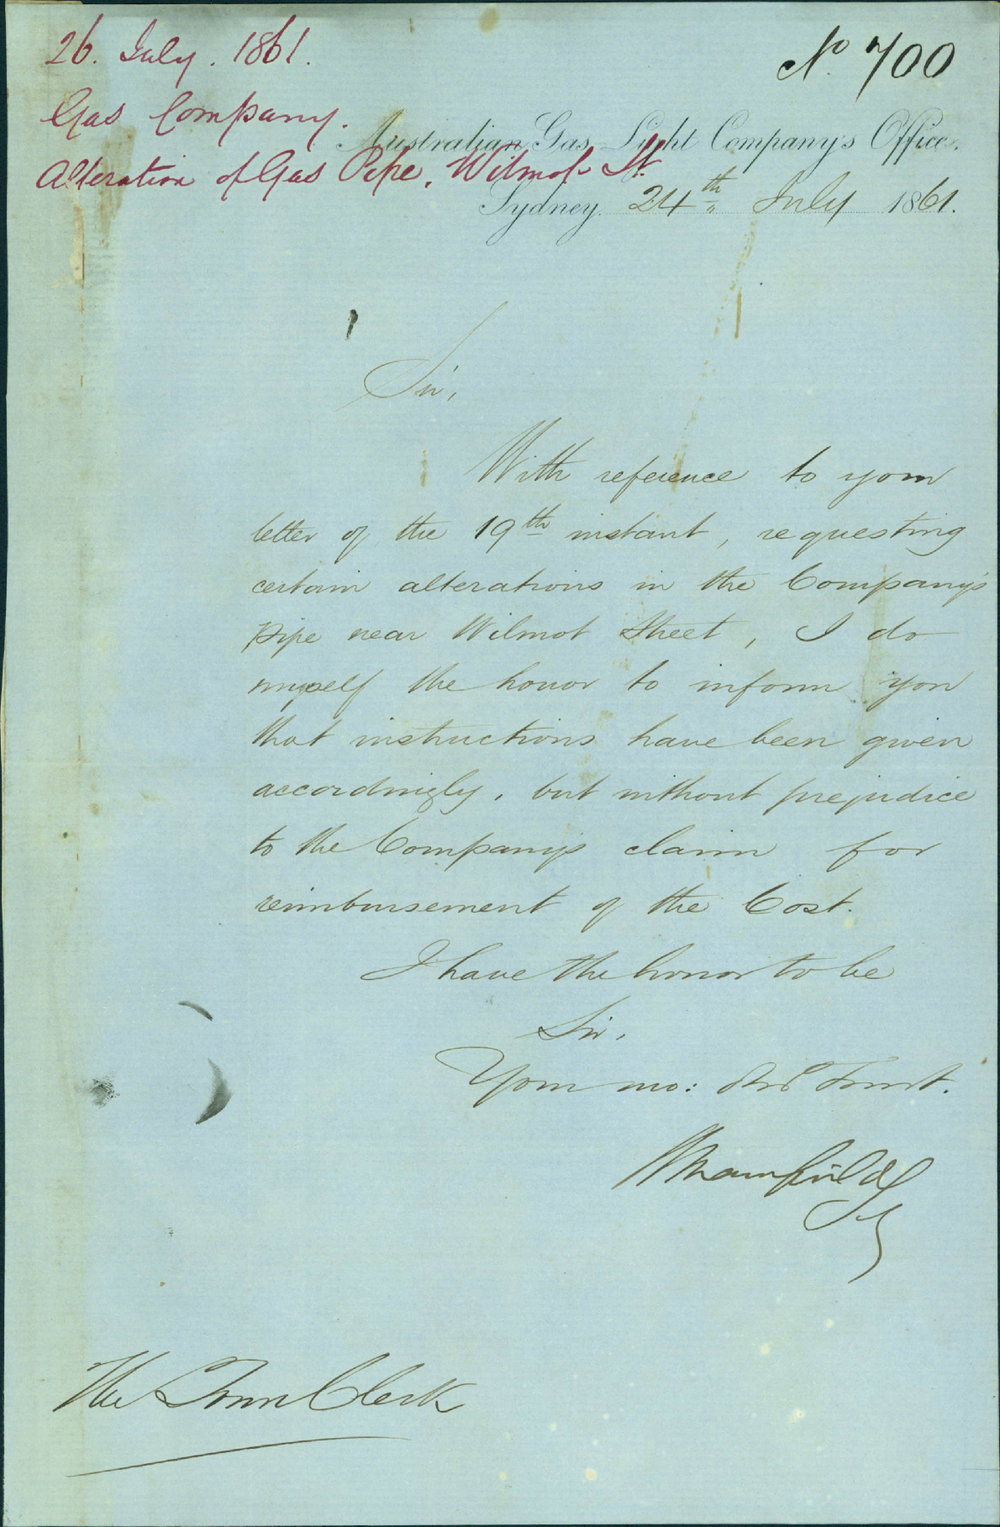 26. July. 1861.
Gas Company.
Alteration of Gas Pipe, Wilmot St.
No 700
Australian Gas Light Company's Office.
Sydney. 24th July 1861.
Sir,
With reference to your
letter of the 19th instant, requesting
certain alterations in the Company's
pipe near Wilmot Street, I do
myself the honor to inform you
that instructions have been given
accordingly, but without prejudice
to the Company's claim for
reimbursement of the Cost.
I have the honor to be
Sir,
Your mo: Obt Servt.
The Town Clerk